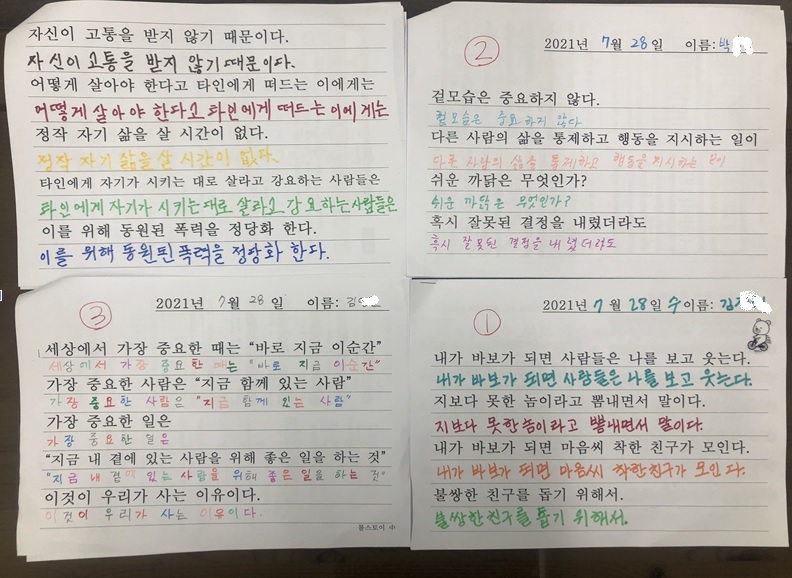 자신이 고통을 받지 않기 때문이다.
자신이 고통을 받지 않기 때문이다.
어떻게 살아야 한다고 타인에게 떠드는 이에게는
어떻게 살아야 한다고 타인에게 떠드는 이에게는
정작 자기 삶을 살 시간이 없다.
정작 자기 삶을 살 시간이 없다.
타인에게 자기가 시키는 대로 살라고 강요하는 사람들은
타인에게 자기가 시키는 대로 살라고 강요하는 사람들은
이를 위해 동원된 폭력을 정당화 한다.
이를 위해 동원된 폭력을 정당화 한다.
② 2021년 7월 28일 이름: 박
겉모습은 중요하지 않다.
겉모습은 중요하지 않다
다른 사람의 삶을 통제하고 행동을 지시하는 일이
다른 사람의 삶을 통제하고 행동을 지시하는 일이
쉬운 까닭은 무엇인가?
쉬운 까닭은 무엇인가?
혹시 잘못된 결정을 내렸더라도
혹시 잘못된 결정을 내렸더라도
③ 2021년 7월 28일 이름: 김
세상에서 가장 중요한 때는 “바로 지금 이순간”
세상에서 가장 중요한 때는 "바로 지금 이순간"
가장 중요한 사람은 “지금 함께 있는 사람”
가장 중요한 사람은 "지금 함께 있는 사람"
가장 중요한 일은
가장 중요한 일은
“지금 내 곁에 있는 사람을 위해 좋은 일을 하는 것”
"지금 내 곁에 있는 사람을 위해 좋은 일을 하는 것"
이것이 우리가 사는 이유이다.
이것이 우리가 사는 이유이다.
톨스토이
① 2021년 7월 28일 수 이름: 김
내가 바보가 되면 사람들은 나를 보고 웃는다.
내가 바보가 되면 사람들은 나를 보고 웃는다.
지보다 못한 놈이라고 뽐내면서 말이다.
지보다 못한 놈이라고 뽐내면서 말이다.
내가 바보가 되면 마음씨 착한 친구가 모인다.
내가 바보가 되면 마음씨 착한 친구가 모인다.
불쌍한 친구를 돕기 위해서.
불쌍한 친구를 돕기 위해서.